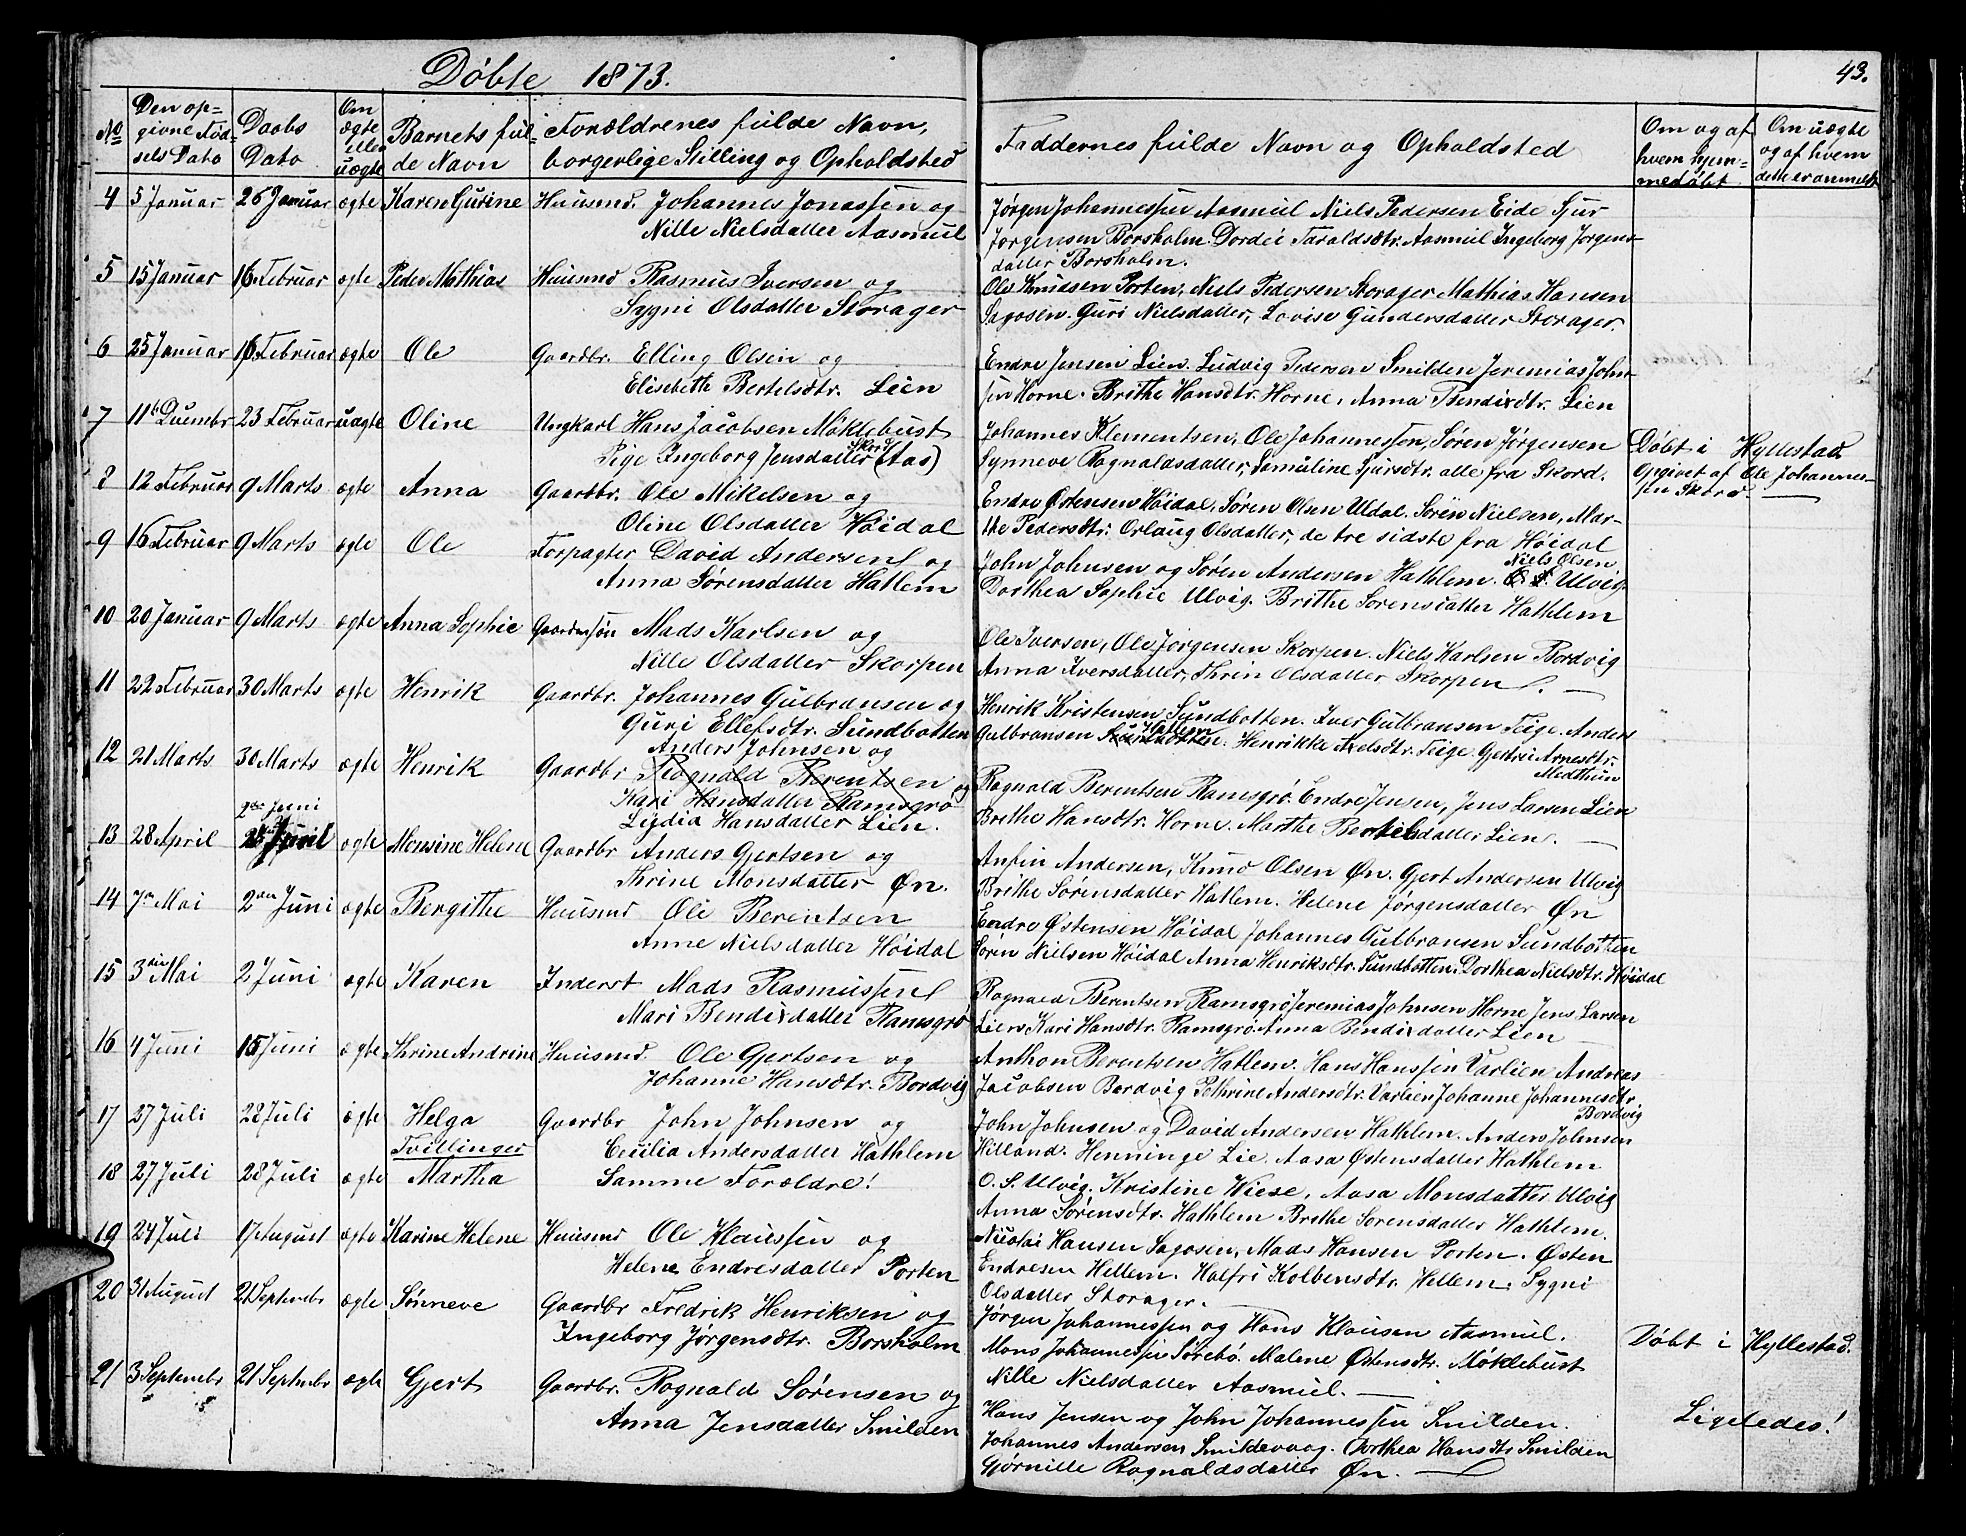 Döbte 1873.
43.
No
Den op-
givne Fød-
sels Dato
Daabs
Dato
Om
ægte
eller
uægte
Barnets ful-
de Navn
Forældrenes fulde Navn,
borgerlige Stilling og Opholdsted
Faddernes fulde Navn og Opholdsted
Om og af
hvem hjem-
medöbt
Om uægte
og af hvem
dette er anmeldt
4 5 Januar 26 Januar ægte Karen Gurine Huusmd Johannes Jonassen og
Nille Nielsdatter Aasmul
Jørgen Johannessen Aasmul Niels Pedersen Eide Sjur
Jørgensen Borsholm. Dordei Taraldsdtr. Aasmul Ingeborg Jørgens-
datter Borsholm.
5 15 Januar 16 Februar ægte Peder Mathias Huusmd Rasmus Iversen og
Sygni Olsdatter Storager
Ole Knudsen Porten, Niels Pedersen Storager Mathias Hansen
Sagosen. Guri Nielsdatter, Lovise Gundersdatter Storager.
6 25 Januar 16 Februar ægte Ole Gaardbr. Elling Olsen og
Elisebeth Bertelsdtr. Lien
Endre Jensen Lien. Ludvig Pedersen Smilden Jeremias John-
sen Horne. Brithe Hansdtr. Horne, Anna Bendixdtr. Lien
7 11te Decembr 23 Februar uægte Oline Ungkarl Hans Jacobsen Møklebust
Pige Ingeborg Jensdatter Skord (Aas)
Johannes Klementsen, Ole Johannessen, Søren Jørgensen
Synneve Ragnaldsdatter, Samuline Sjursdtr. alle fra Skord.
Døbt i Hyllestad.
Opgivet af Ole Johannes-
sen Skord
8 12 Februar 9 Marts ægte Anna Gaardbr. Ole Mikelsen og
Oline Olsdatter Höidal
Endre Østensen Höidal, Søren Olsen Uldal. Søren Nielsen, Mar-
the Pedersdtr. Orlaug Olsdatter, de tre sidste fra Höidal
9 16 Februar 9 Marts ægte Ole Forpagter David Andersen og
Anna Sørensdatter Hatlem
John Johnsen og Søren Andersen Hathlem. Niels Olsen Ulvig.
Dorthea Sophie Ulvig. Brithe Sorensdatter Hathlem
10 20 Januar 9 Marts ægte Anna Sophie Gaardmssøn Mads Karlsen og
Nille Olsdatter Skorpen
Ole Iversen, Ole Jørgensen Skorpen. Niels Karlsen Bordvig
Anna Iversdatter, Thrin Olsdatter Skorpen.
11 22 Februar 30 Marts ægte Henrik Gaardbr. Johannes Gulbransen og
Guri Ellefsdtr. Sundbotten
Henrik Kristensen Sundbotten. Iver Gulbransen Teige. Anders
Gulbransen Hatlem. Henrikke Axelsdtr. Teige Gjertrui Arnesdtr.
Medthun
12 21 Marts 30 Marts ægte Henrik Gaardbr Anders Johnsen og
Ragnald Berentsen og
Kari Hansdatter Ramsgrø
Lydia Hansdatter Lien.
Ragnald Berentsen Ramsgrø. Endre Jensen, Jens Larsen Lien
Brithe Hansdtr. Horne. Marthe Bertelsdatter Lien.
13 28 April 2den Juni ægte Monsine Helene Gaardbr Anders Gjertsen og
Thrine Monsdatter Øn.
Anfin Andersen, Knud Olsen Øn. Gjert Andersen Ulvig
Brithe Sørensdatter Hatlem. Helene Jørgensdatter Øn
14 7de Mai 2den Juni ægte Bergithe Huusmd Ole Berentsen
Anne Nielsdatter Höidal
Endre Østensen Höidal Johannes Gulbransen Sundbotten
Søren Nielsen Höidal Anna Henriksdtr. Sundbotten. Dorthea Nielsdtr. Höidal
15 3die Mai 2 Juni ægte Karen Inderst Mads Rasmussen
Mari Bendixdatter Ramsgrø
Ragnald Berentsen Ramsgrø Jeremias Johnsen Horne Jens Larsen
Lien Kari Hansdtr. Ramsgrø. Anna Bendixdatter Lien
16 4 Juni 15 Juni ægte Thrine Andrine Huusmd. Ole Gjertsen og
Johanne Hansdtr. Bordvig
Anthon Berentsen Hatlem. Hans Hanssen Varlien Andreas
Jacobsen Bordvig Pethrine Andersdtr. Varlien Johanne Johannesdtr
Bordvig
17 27 Juli 28 Juli ægte Helga Gaardbr John Johnsen og
Tvillinger Cecilia Andersdatter Hathlem
John Johnsen og David Andersen Hathlem. Anders Johnsen
Hilland. Henninge Lie. Aasa Østensdatter Hathlem
18 27 Juli 28 Juli ægte Martha Samme Forældre!
O. S. Ulvig. Kristine Wiese, Aasa Monsdatter Ulvig
Anna Sørensdtr. Hathlem Brithe Sorensdatter Hathlem.
19 24 Juli 17 August ægte Karine Helene Huusmd Ole Klaussen og
Helene Endresdatter Porten
Nicolai Hansen Sagosen, Mads Hansen Porten. Østen
Endresen Hellem. Halfri Kolbensdtr. Hellem. Sygni
Olsdatter Storager.
20 31 August 21 Septembr ægte Sønneve Gaardbr Fredrik Henriksen og
Ingeborg Jørgensdtr. Borsholm
Jørgen Johannessen og Hans Klausen Aasmul.
Mons Johannessen Sørebø. Malene Østensdtr. Møklebust
Nille Nielsdatter Aasmul.
Döbt i Hyllestad.
21 3 Septembr 21 Septembr ægte Gjert Gaardbr. Ragnald Sörensen og
Anna Jensdatter Smilden
Hans Jensen og John Johannessen Smilden.
Johannes Andersen Smildevaag. Dorthea Hansdtr Smilden
Gjørnille Ragnaldsdatter Øn.
Ligeledes!